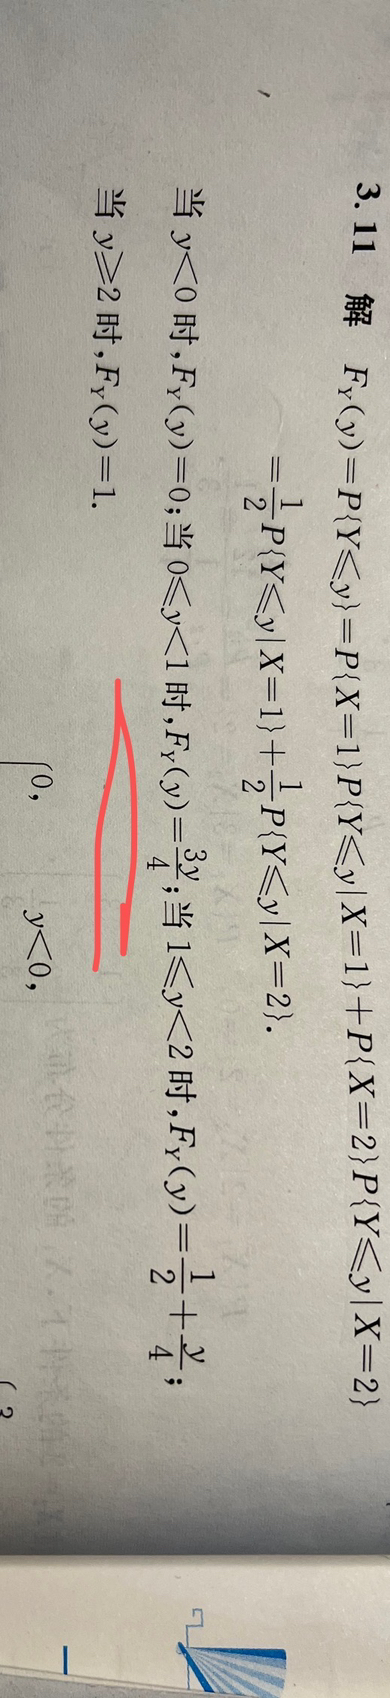 3.11 解 F_Y(y)=P{Y≤y}=P{X=1}P{Y≤y|X=1}+P{X=2}P{Y≤y|X=2}
=1/2P{Y≤y|X=1}+1/2P{Y≤y|X=2}.
当 y<0 时,F_Y(y)=0;当 0≤y<1 时,F_Y(y)=3y/4;当 1≤y<2 时,F_Y(y)=1/2+y/4;
当 y≥2 时,F_Y(y)=1.
{0, y<0,